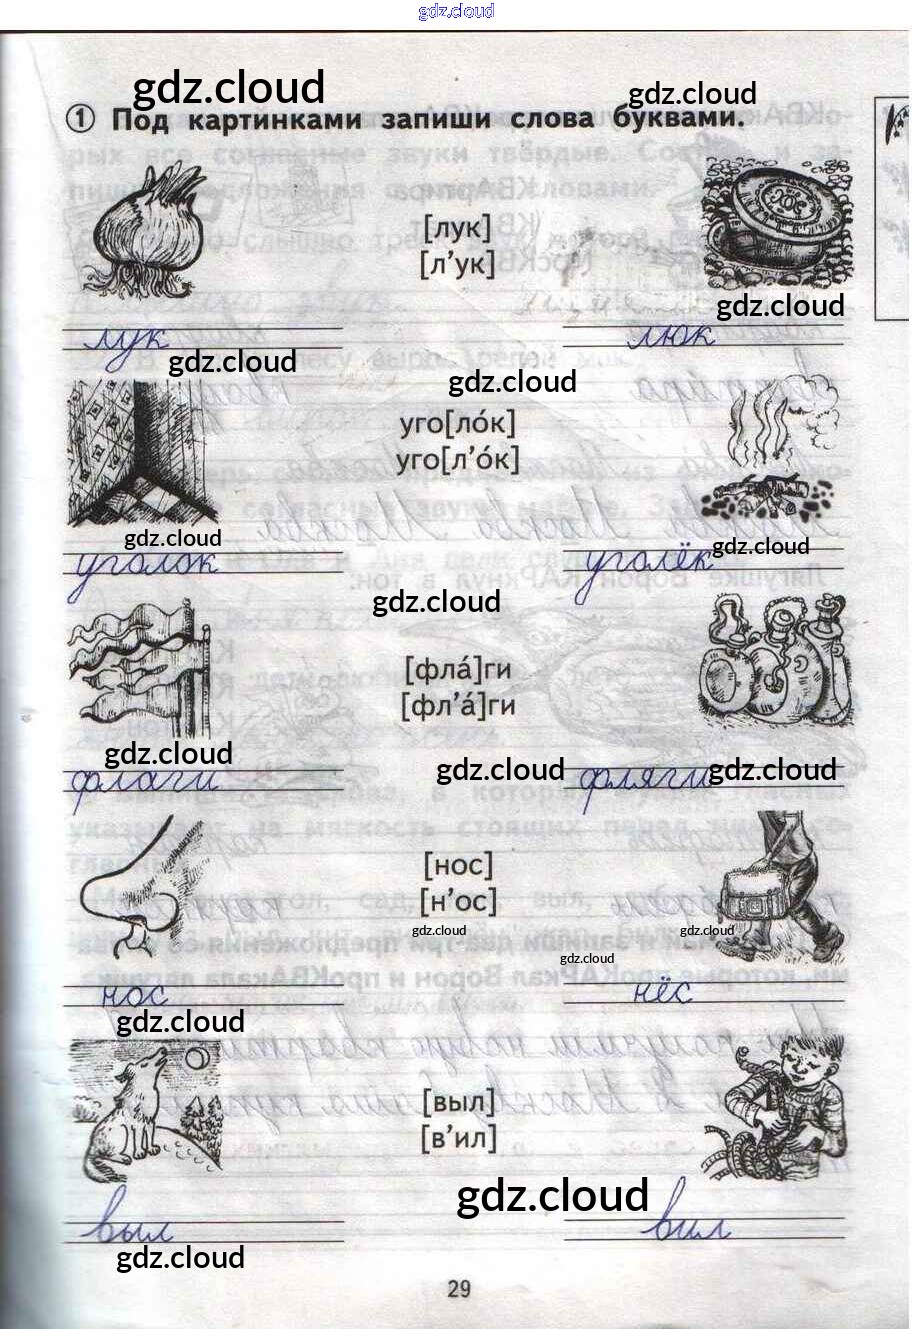 gdz.cloud
gdz.cloud
gdz.cloud
① Под картинками запиши слова буквами.
[лук]
[л’ук]
gdz.cloud
лук
люк
gdz.cloud
gdz.cloud
уго[ло́к]
уго[л’о́к]
gdz.cloud
gdz.cloud
уголок
уголёк
gdz.cloud
[фла́]ги
[фл’а́]ги
gdz.cloud
gdz.cloud
gdz.cloud
флаги
фляги
[нос]
[н’ос]
gdz.cloud
gdz.cloud
gdz.cloud
нос
нёс
gdz.cloud
[выл]
[в’ил]
gdz.cloud
выл
вил
gdz.cloud
29